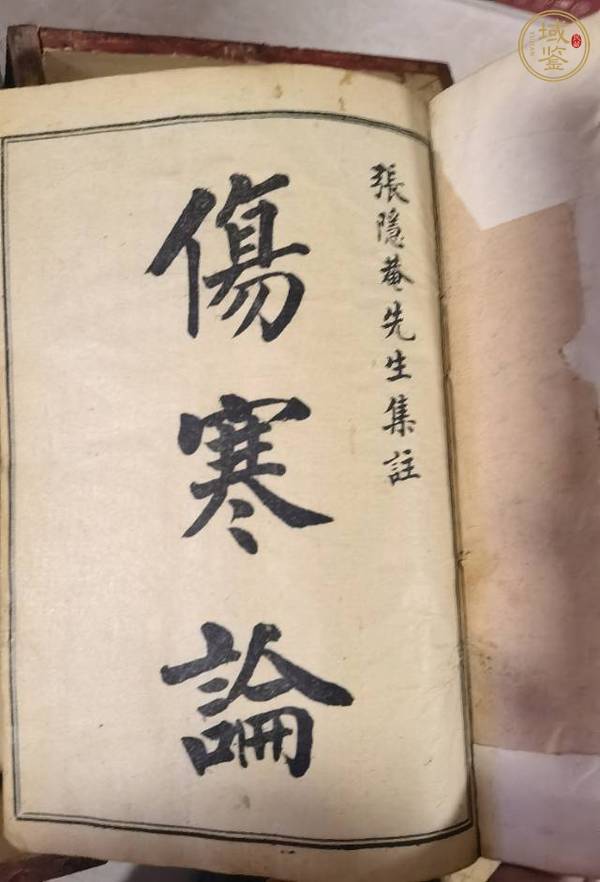 張隱菴先生集註
傷寒論
域鉴